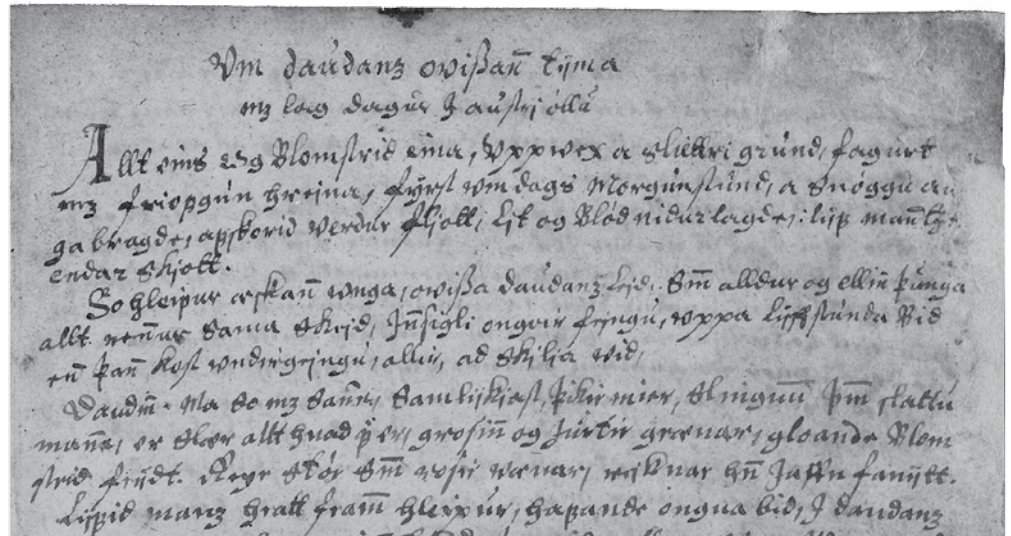 Vm daudanz ovißañ tijma
mz lag dagur J austrj öllu
Allt eins og Blomstrid eina, Vppvex a sliettri grund, fagurt
mz friofgun hreina, fyrst vm dags Morgunstund, a snöggu au
ga bragde, afskorid verdur fliott, Lit og Blöd nidur lagde, lijf mañtz
endar skjott.
So hleipur æskañ vnga, ovißa daudanz leid, Sm̃ alldur og elliñ þunga
allt reñar sama skeid, Jñsigli ongvir feingu, vppa lijffstunda Bid
eñ þañ kost vndergeingu, aller, ad skilja vid,
Daudiñ Ma so mz sañe, samlijkiast, þikir mier, slinguñ þm̃ slattu
mañe, er slær allt hvad f er, grosiñ og Jurter grænar, gloande Blom
strid frijdt. Reyr stör Sm̃ roser vænar, reiknar hñ Jaffn fanijtt.
Lijfid manz hratt framm hleipur, hafande ongva bid, J daudanz